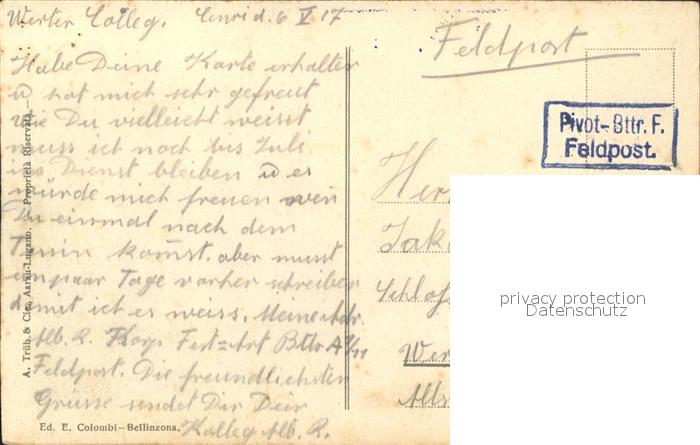 Werter Colleg. d. 6 V 17
Habe Deine Karte erhalten
u hat mich sehr gefreut
wie Du vielleicht weisst
muss ich noch bis Juli
im Dienst bleiben u es
würde mich freuen wen
Du einmal nach dem
Tessin komst. aber musst
ein paar Tage vorher schreiben
damit ich es weiss. Meine Adr.
Alb. R. Korp. Fest=Art Bttr
Feldpost. Die freundlichsten
Grüsse sendet Dir Dein
Kolleg Alb. R.
A. Trüb & Cie. Aarau-Lugano. — Proprietà Riservata.
Ed. E. Colombi—Bellinzona.
Feldpost
Pivot-Bttr. F.
Feldpost.
Her
Jak
Schlos
Wer
privacy protection
Datenschutz